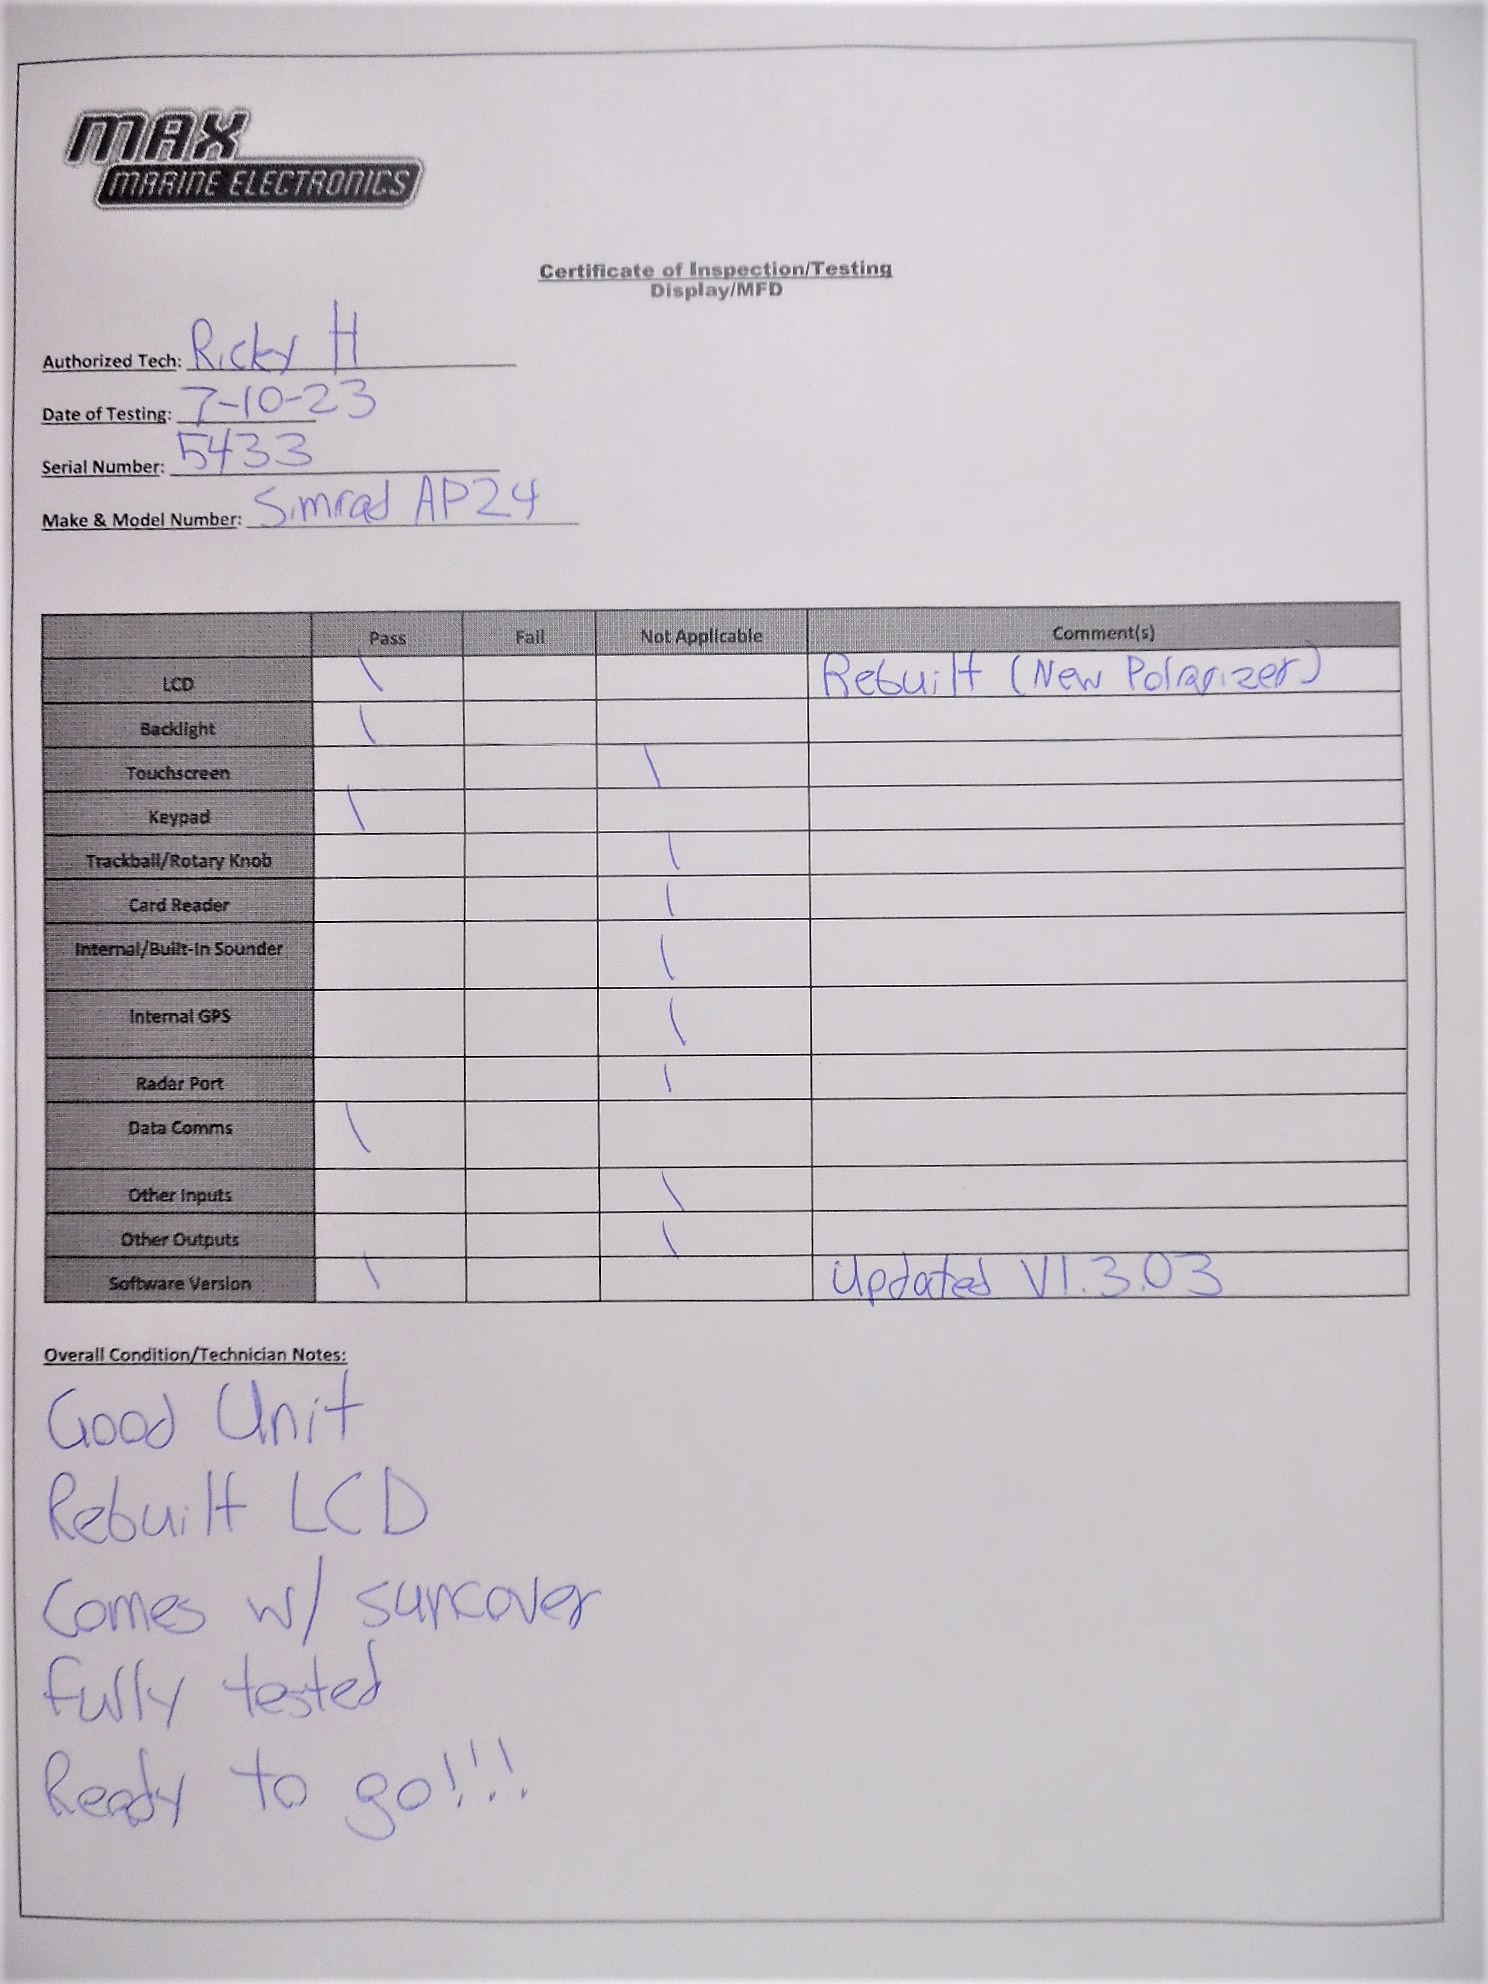 MAX
MARINE ELECTRONICS
Certificate of Inspection/Testing
Display/MFD
Authorized Tech: Ricky H
Date of Testing: 7-10-23
Serial Number: 5433
Make & Model Number: Simrad AP24
Pass Fail Not Applicable Comment(s)
LCD \ Rebuilt (New Polarizer)
Backlight \
Touchscreen \
Keypad \
Trackball/Rotary Knob \
Card Reader \
Internal/Built-In Sounder \
Internal GPS \
Radar Port \
Data Comms \
Other Inputs \
Other Outputs \
Software Version \ Updated V1.3.03
Overall Condition/Technician Notes:
Good Unit
Rebuilt LCD
Comes w/ suncover
fully tested
Ready to go!!!